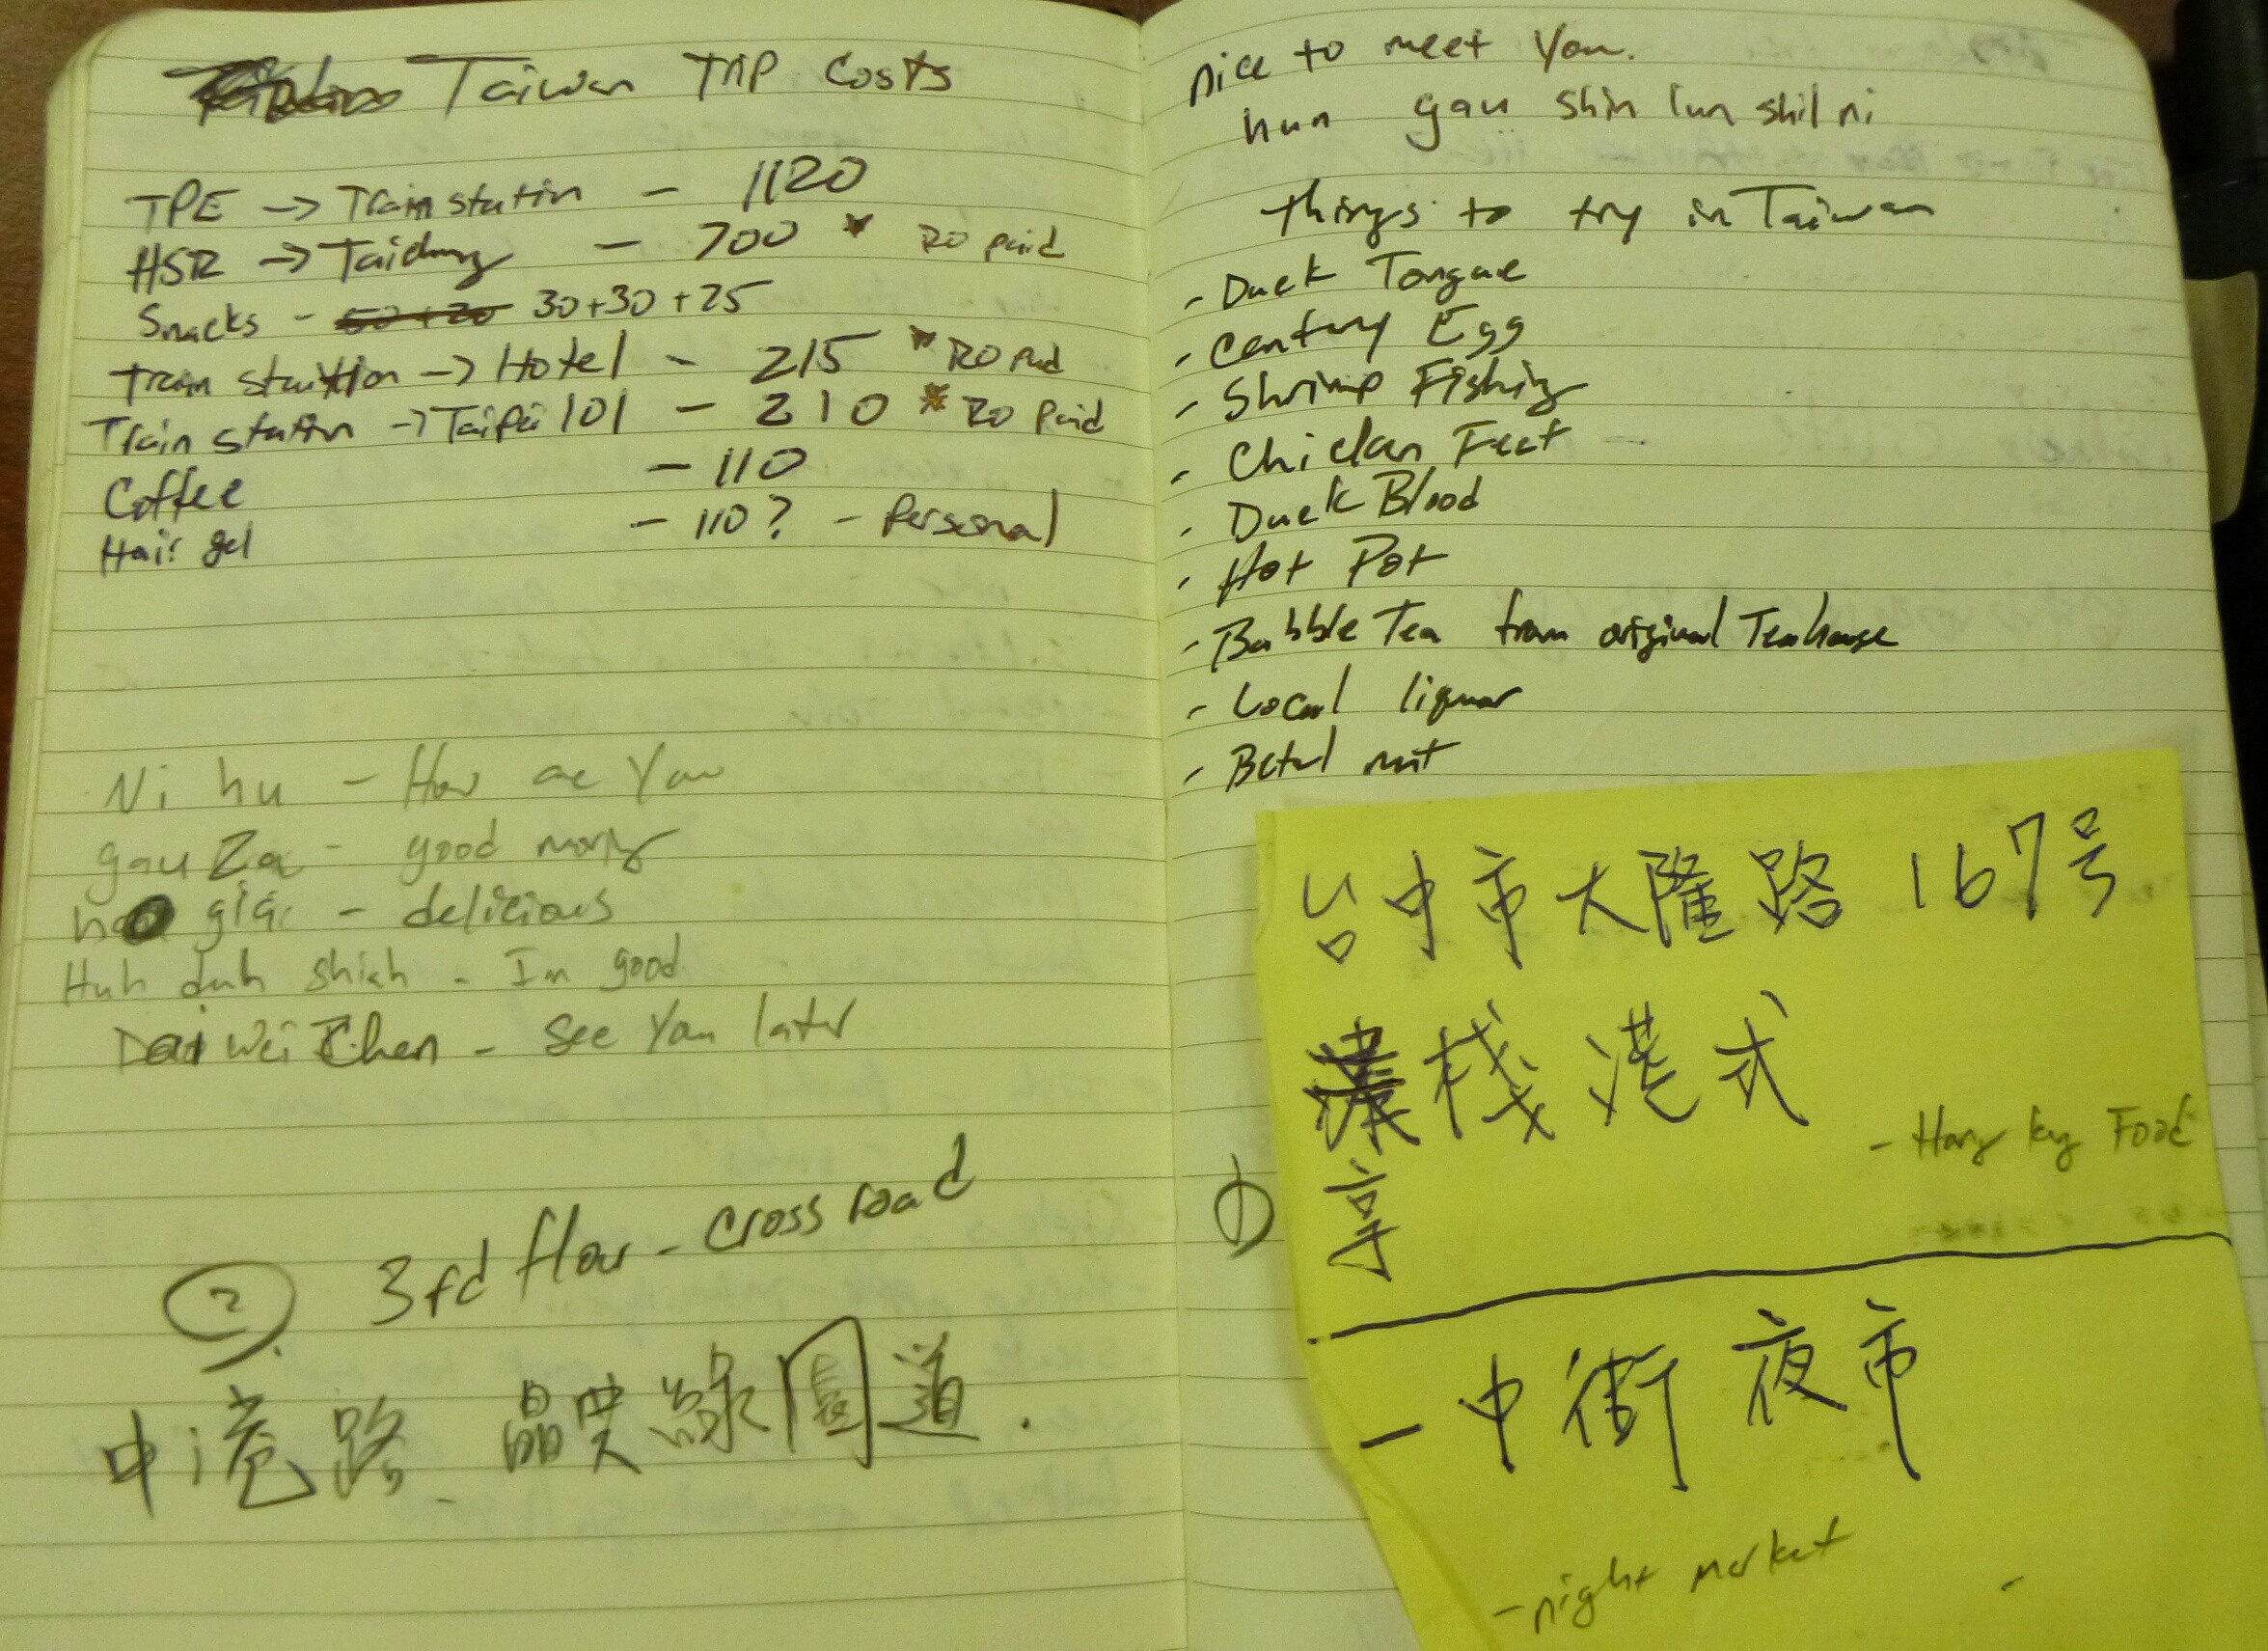 Taiwan Trip Costs
TPE → Train station - 1120
HSR → Taichung - 700 * RO paid
Snacks - 30+30+25
Train station → Hotel - 215 * RO paid
Train station → Taipei 101 - 210 * RO paid
Coffee - 110
Hair gel - 110? - Personal
Ni hu - How are You
gau Za - good morning
hao giai - delicious
Huh duh shiah - Im good
Dai Wei Chen - See You later
② 3rd floor - cross road
中港路 園道.
nice to meet You.
hun gau shin lun shil ni
things to try in Taiwan
- Duck Tongue
- Century Egg
- Shrimp Fishing
- Chicken Feet
- Duck Blood
- Hot Pot
- Bubble Tea from original Teahouse
- Local liquor
- Betel nut
台中市大隆路 167号
栈港式
- Hong Kong Food
①
一中街夜市
- night market